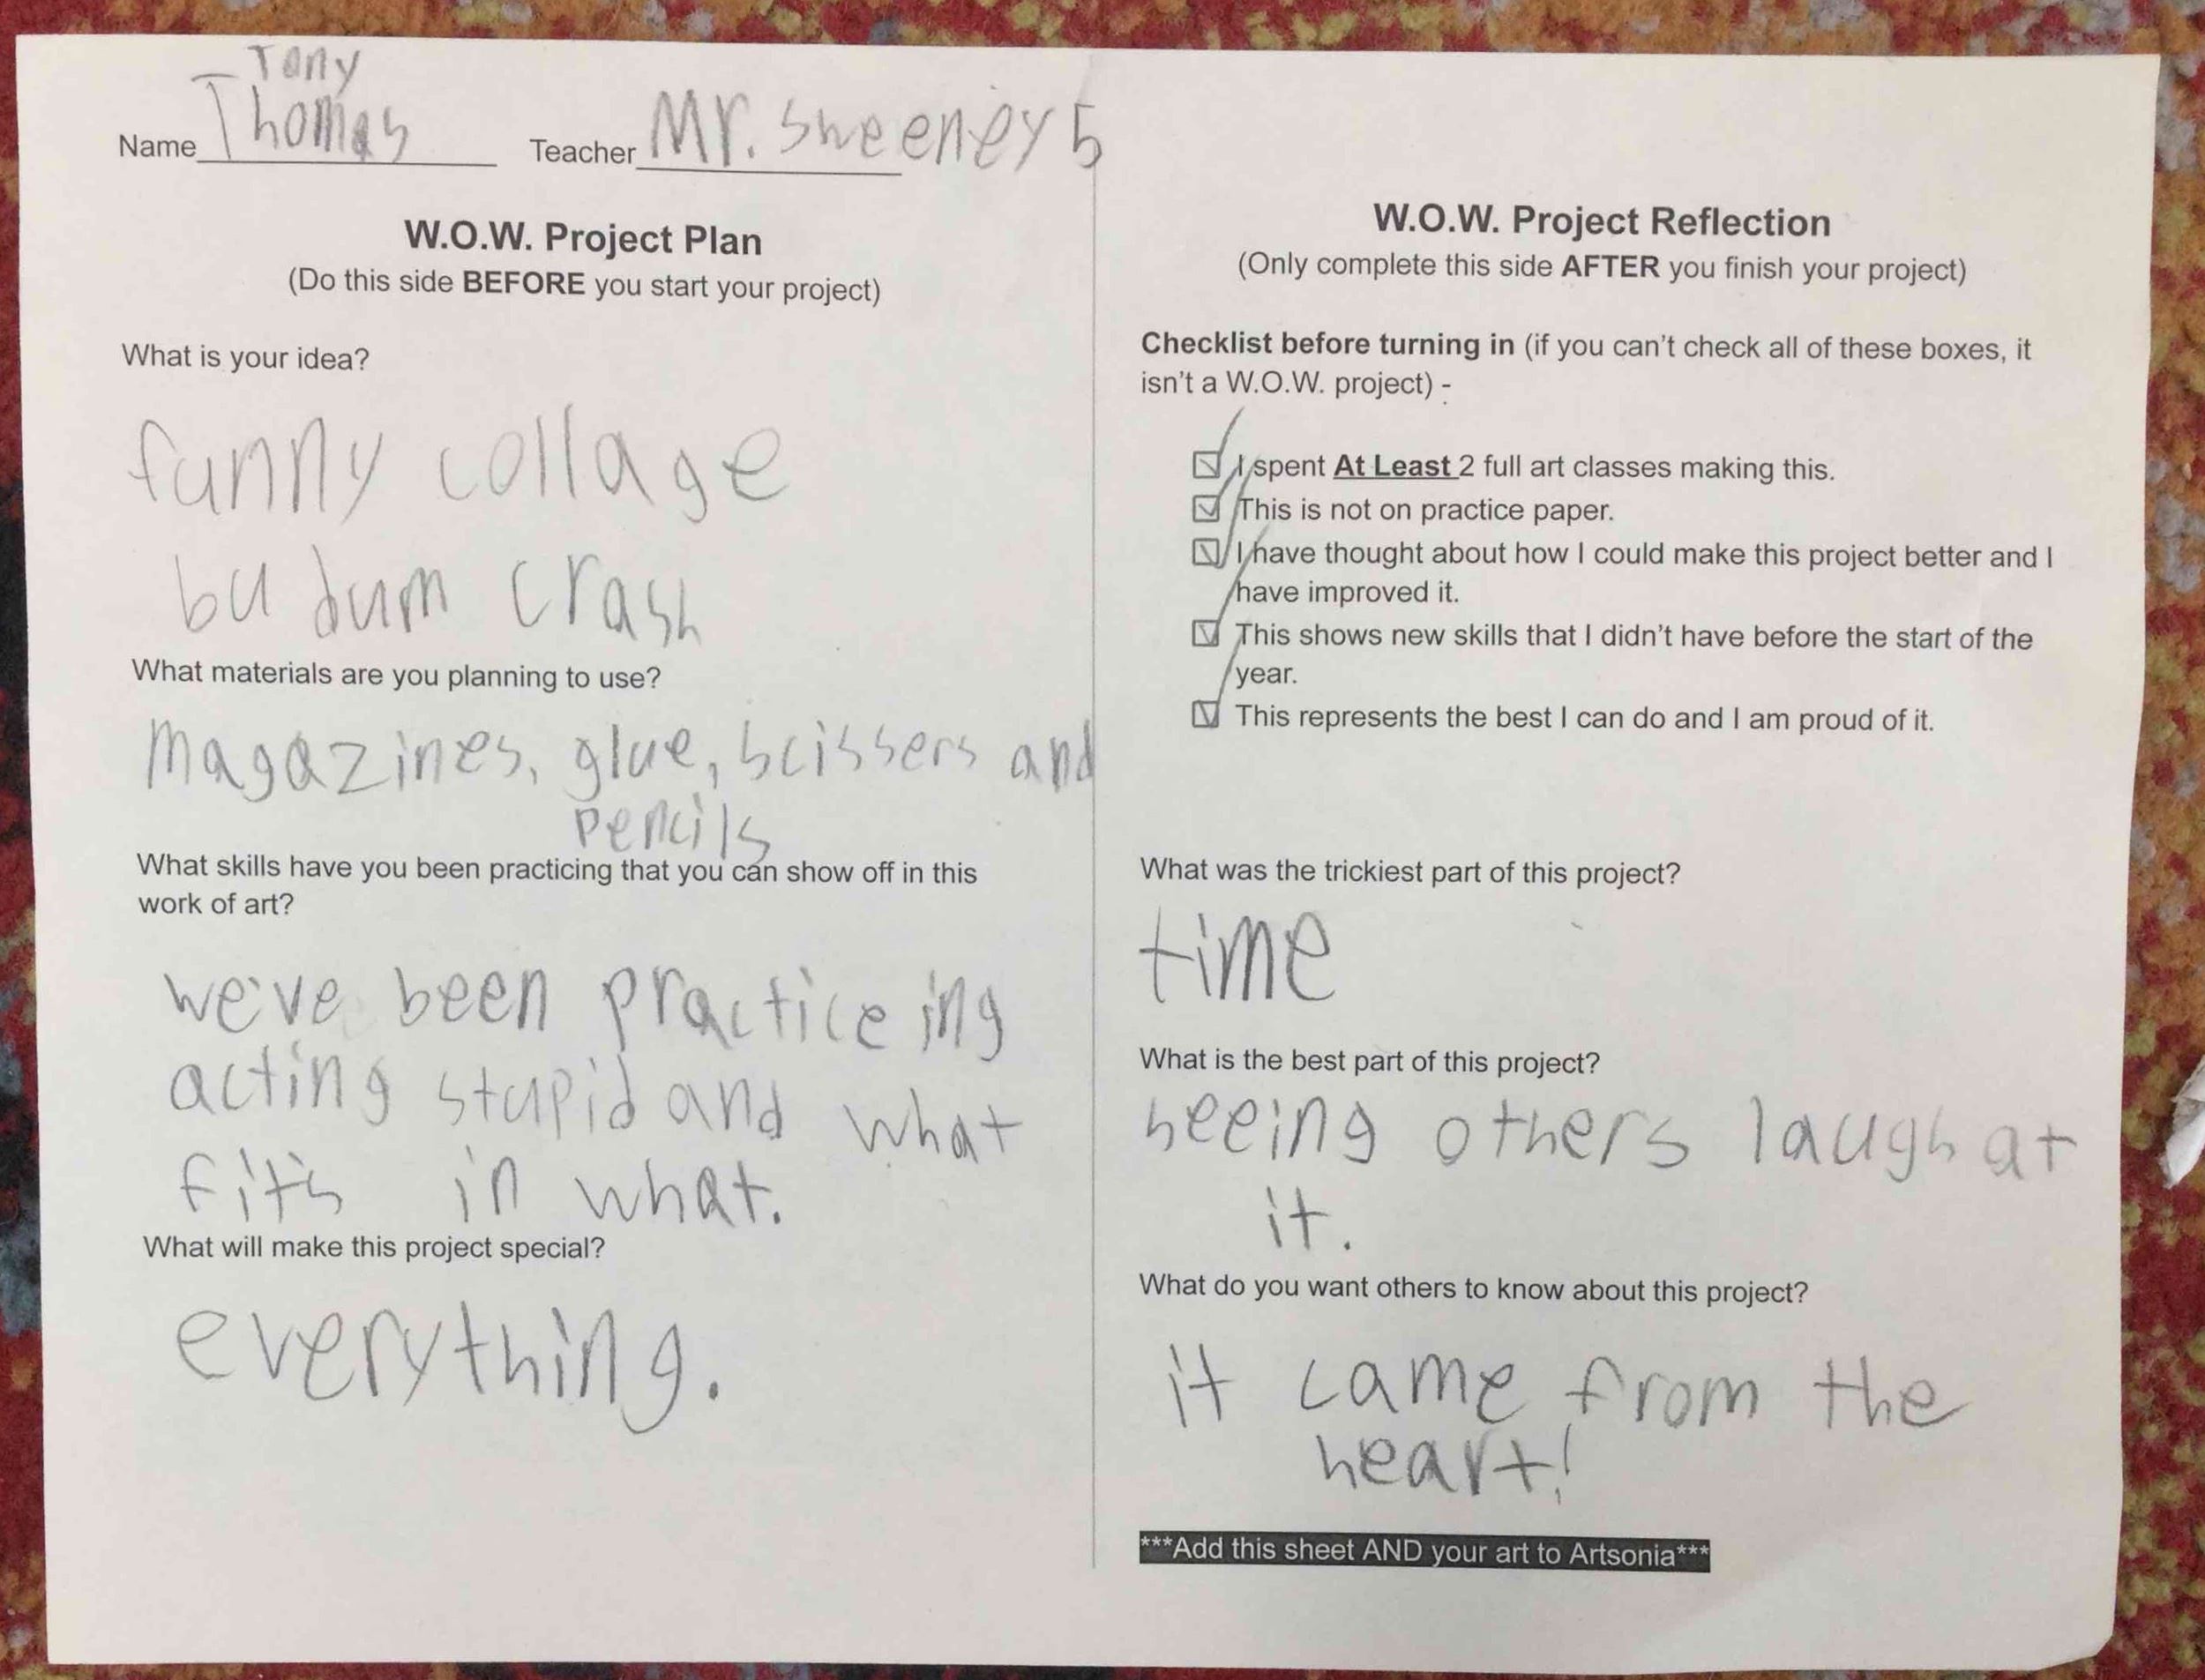 Tony
Name Thomas Teacher Mr. Sweeney 5
W.O.W. Project Plan
(Do this side BEFORE you start your project)
What is your idea?
funny collage
bu dum crash
What materials are you planning to use?
magazines, glue, scissers and
pencils
What skills have you been practicing that you can show off in this
work of art?
we've been practiceing
acting stupid and what
fit's in what.
What will make this project special?
everything.
W.O.W. Project Reflection
(Only complete this side AFTER you finish your project)
Checklist before turning in (if you can't check all of these boxes, it
isn't a W.O.W. project) -
I spent At Least 2 full art classes making this.
This is not on practice paper.
I have thought about how I could make this project better and I
have improved it.
This shows new skills that I didn't have before the start of the
year.
This represents the best I can do and I am proud of it.
What was the trickiest part of this project?
time
What is the best part of this project?
seeing others laugh at
it.
What do you want others to know about this project?
it came from the
heart!
***Add this sheet AND your art to Artsonia***